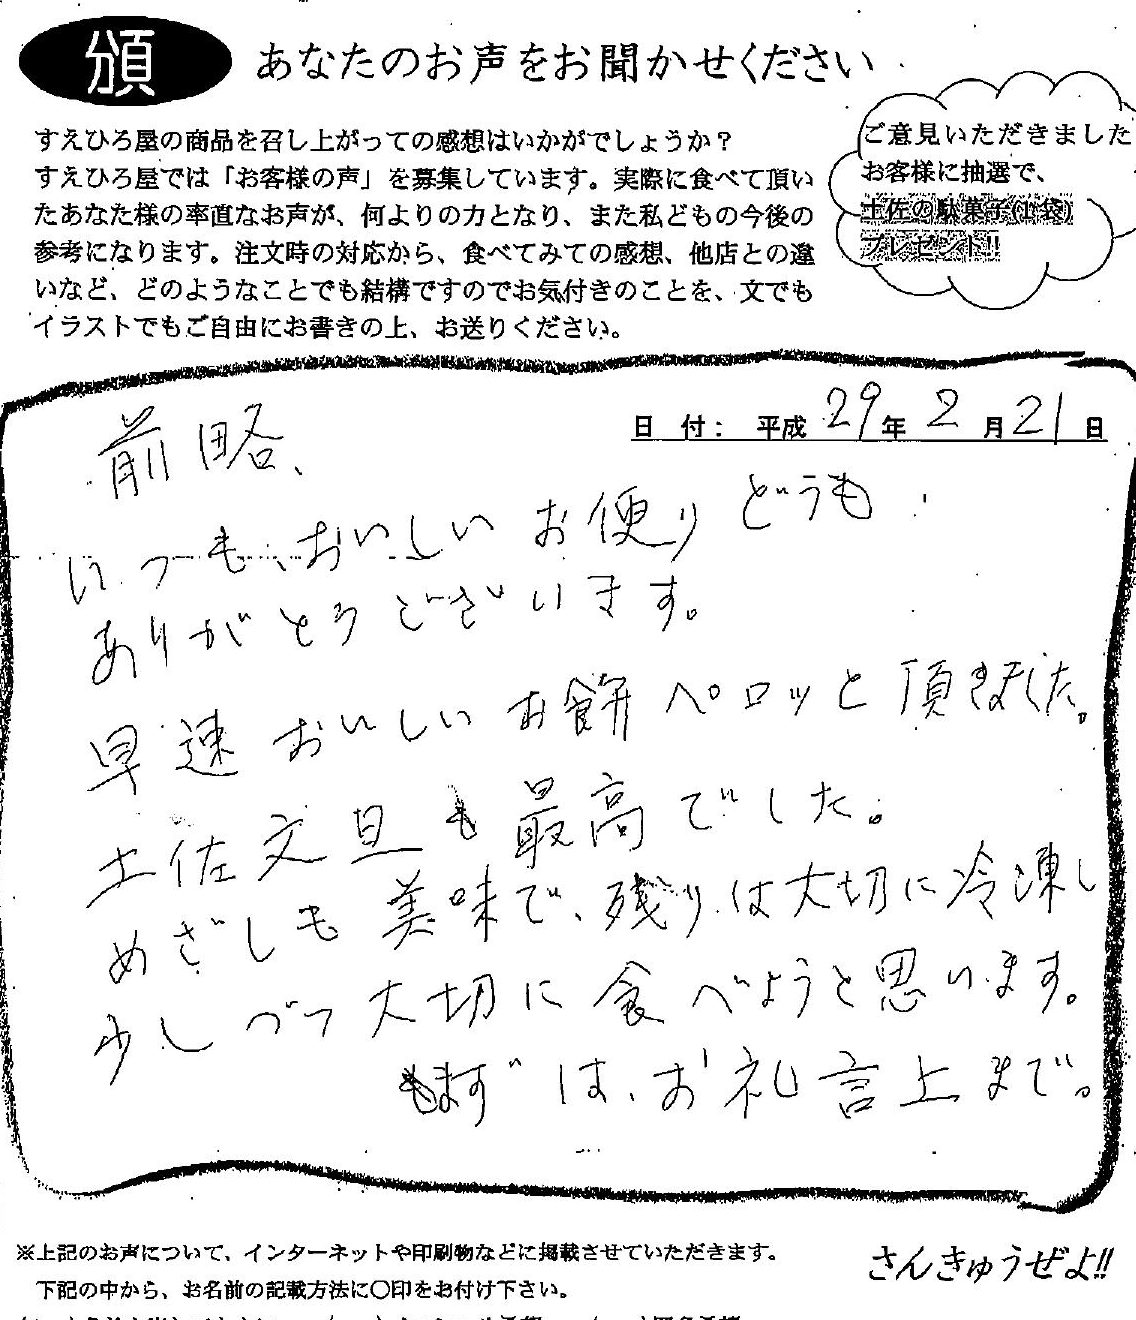 頒 あなたのお声をお聞かせください
すえひろ屋の商品を召し上がっての感想はいかがでしょうか？
すえひろ屋では「お客様の声」を募集しています。実際に食べて頂い
たあなた様の率直なお声が、何よりの力となり、また私どもの今後の
参考になります。注文時の対応から、食べてみての感想、他店との違
いなど、どのようなことでも結構ですのでお気付きのことを、文でも
イラストでもご自由にお書きの上、お送りください。
ご意見いただきました
お客様に抽選で、
土佐の駄菓子(1袋)
プレゼント!!
日 付： 平成 29 年 2 月 21 日
前略、
いつも、おいしいお便りどうも
ありがとうございます。
早速おいしいお餅ペロッと頂きました。
土佐文旦も最高でした。
めざしも美味で、残りは大切に冷凍し
少しづつ大切に食べようと思います。
まずは、お礼言上まで。
※上記のお声について、インターネットや印刷物などに掲載させていただきます。
下記の中から、お名前の記載方法に〇印をお付け下さい。
さんきゅうぜよ!!